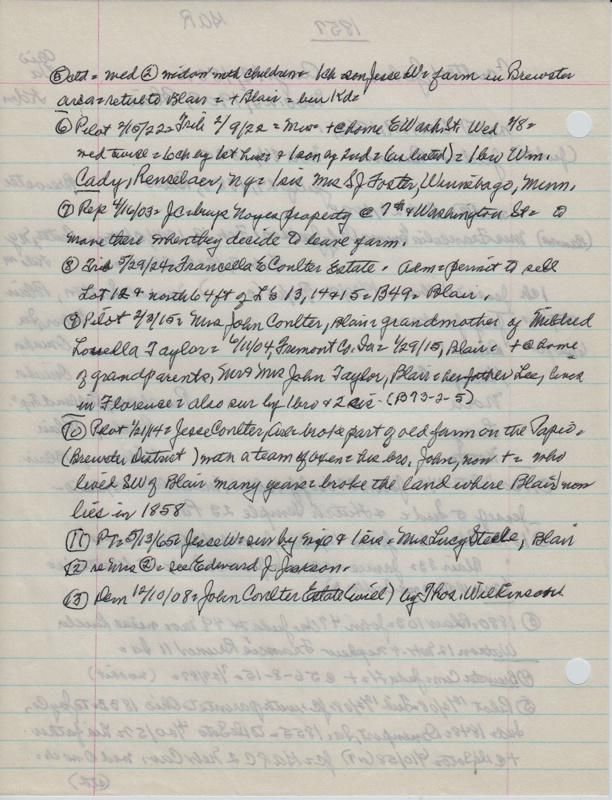 1857 HCR
⑤ ctd = wed ② widow with children = 1ch son, Jesse W = farm in Brewster
area = return to Blair = + Blair = bur Kd=
⑥ Pilot 2/15/22 = Trib 2/9/22 = Mrs = + @ home E Wash St. Wed 2/8 =
wed twice = 6ch by 1st husb & 1 son by 2nd = (as listed) = 1 bro Wm.
Cady, Renselaer, Ny = 1 sis Mrs S J Foster, Winnebago, Minn.
⑦ Rep 4/16/03 = JC = buys Noyes property @ 7th & Washington St = to
move there when they decide to leave farm.
⑧ Trib 5/29/24 = Francella E Coulter Estate. adm = permit to sell
Lot 12 & north 64 ft of L's 13, 14 & 15 = B49 = Blair.
⑨ Pilot 2/3/15 = Mrs John Coulter, Blair = grandmother of Mildred
Louella Taylor = 6/11/04, Fremont Co. Ia = 1/29/15, Blair = + @ home
of grandparents, Mr & Mrs John Taylor, Blair = her father Lee, lives
in Florence = also sur by 1 bro & 2 sis. (B73-2-5)
⑩ Pilot 1/21/14 = Jesse Coulter, broke part of old farm on the Papio =
(Brewster District) with a team of oxen = his bro. John, now + = who
lived SW of Blair many years = broke the land where Blair now
lies in 1858
⑪ PT = 5/13/65 = Jesse W = sur by & 1 sis = Mrs Lucy Steele, Blair
⑫ re Mrs ② = see Edward J. Jackson.
⑬ Dem 12/10/08 = John Coulter Estate (will) by Thos. Wilkinson